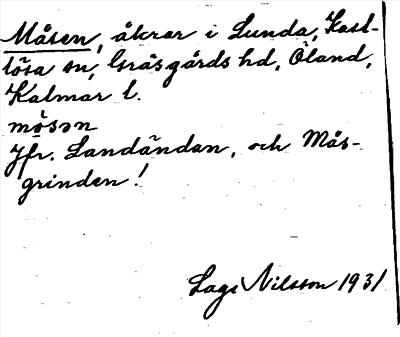 Måsen, åkrar i Lunda, Kast-
lösa sn, Gräsgårds hd, Öland,
Kalmar l.
mǫ̀sən
Jfr. Landändan, och Mås-
grinden!
Lage Nilsson 1931